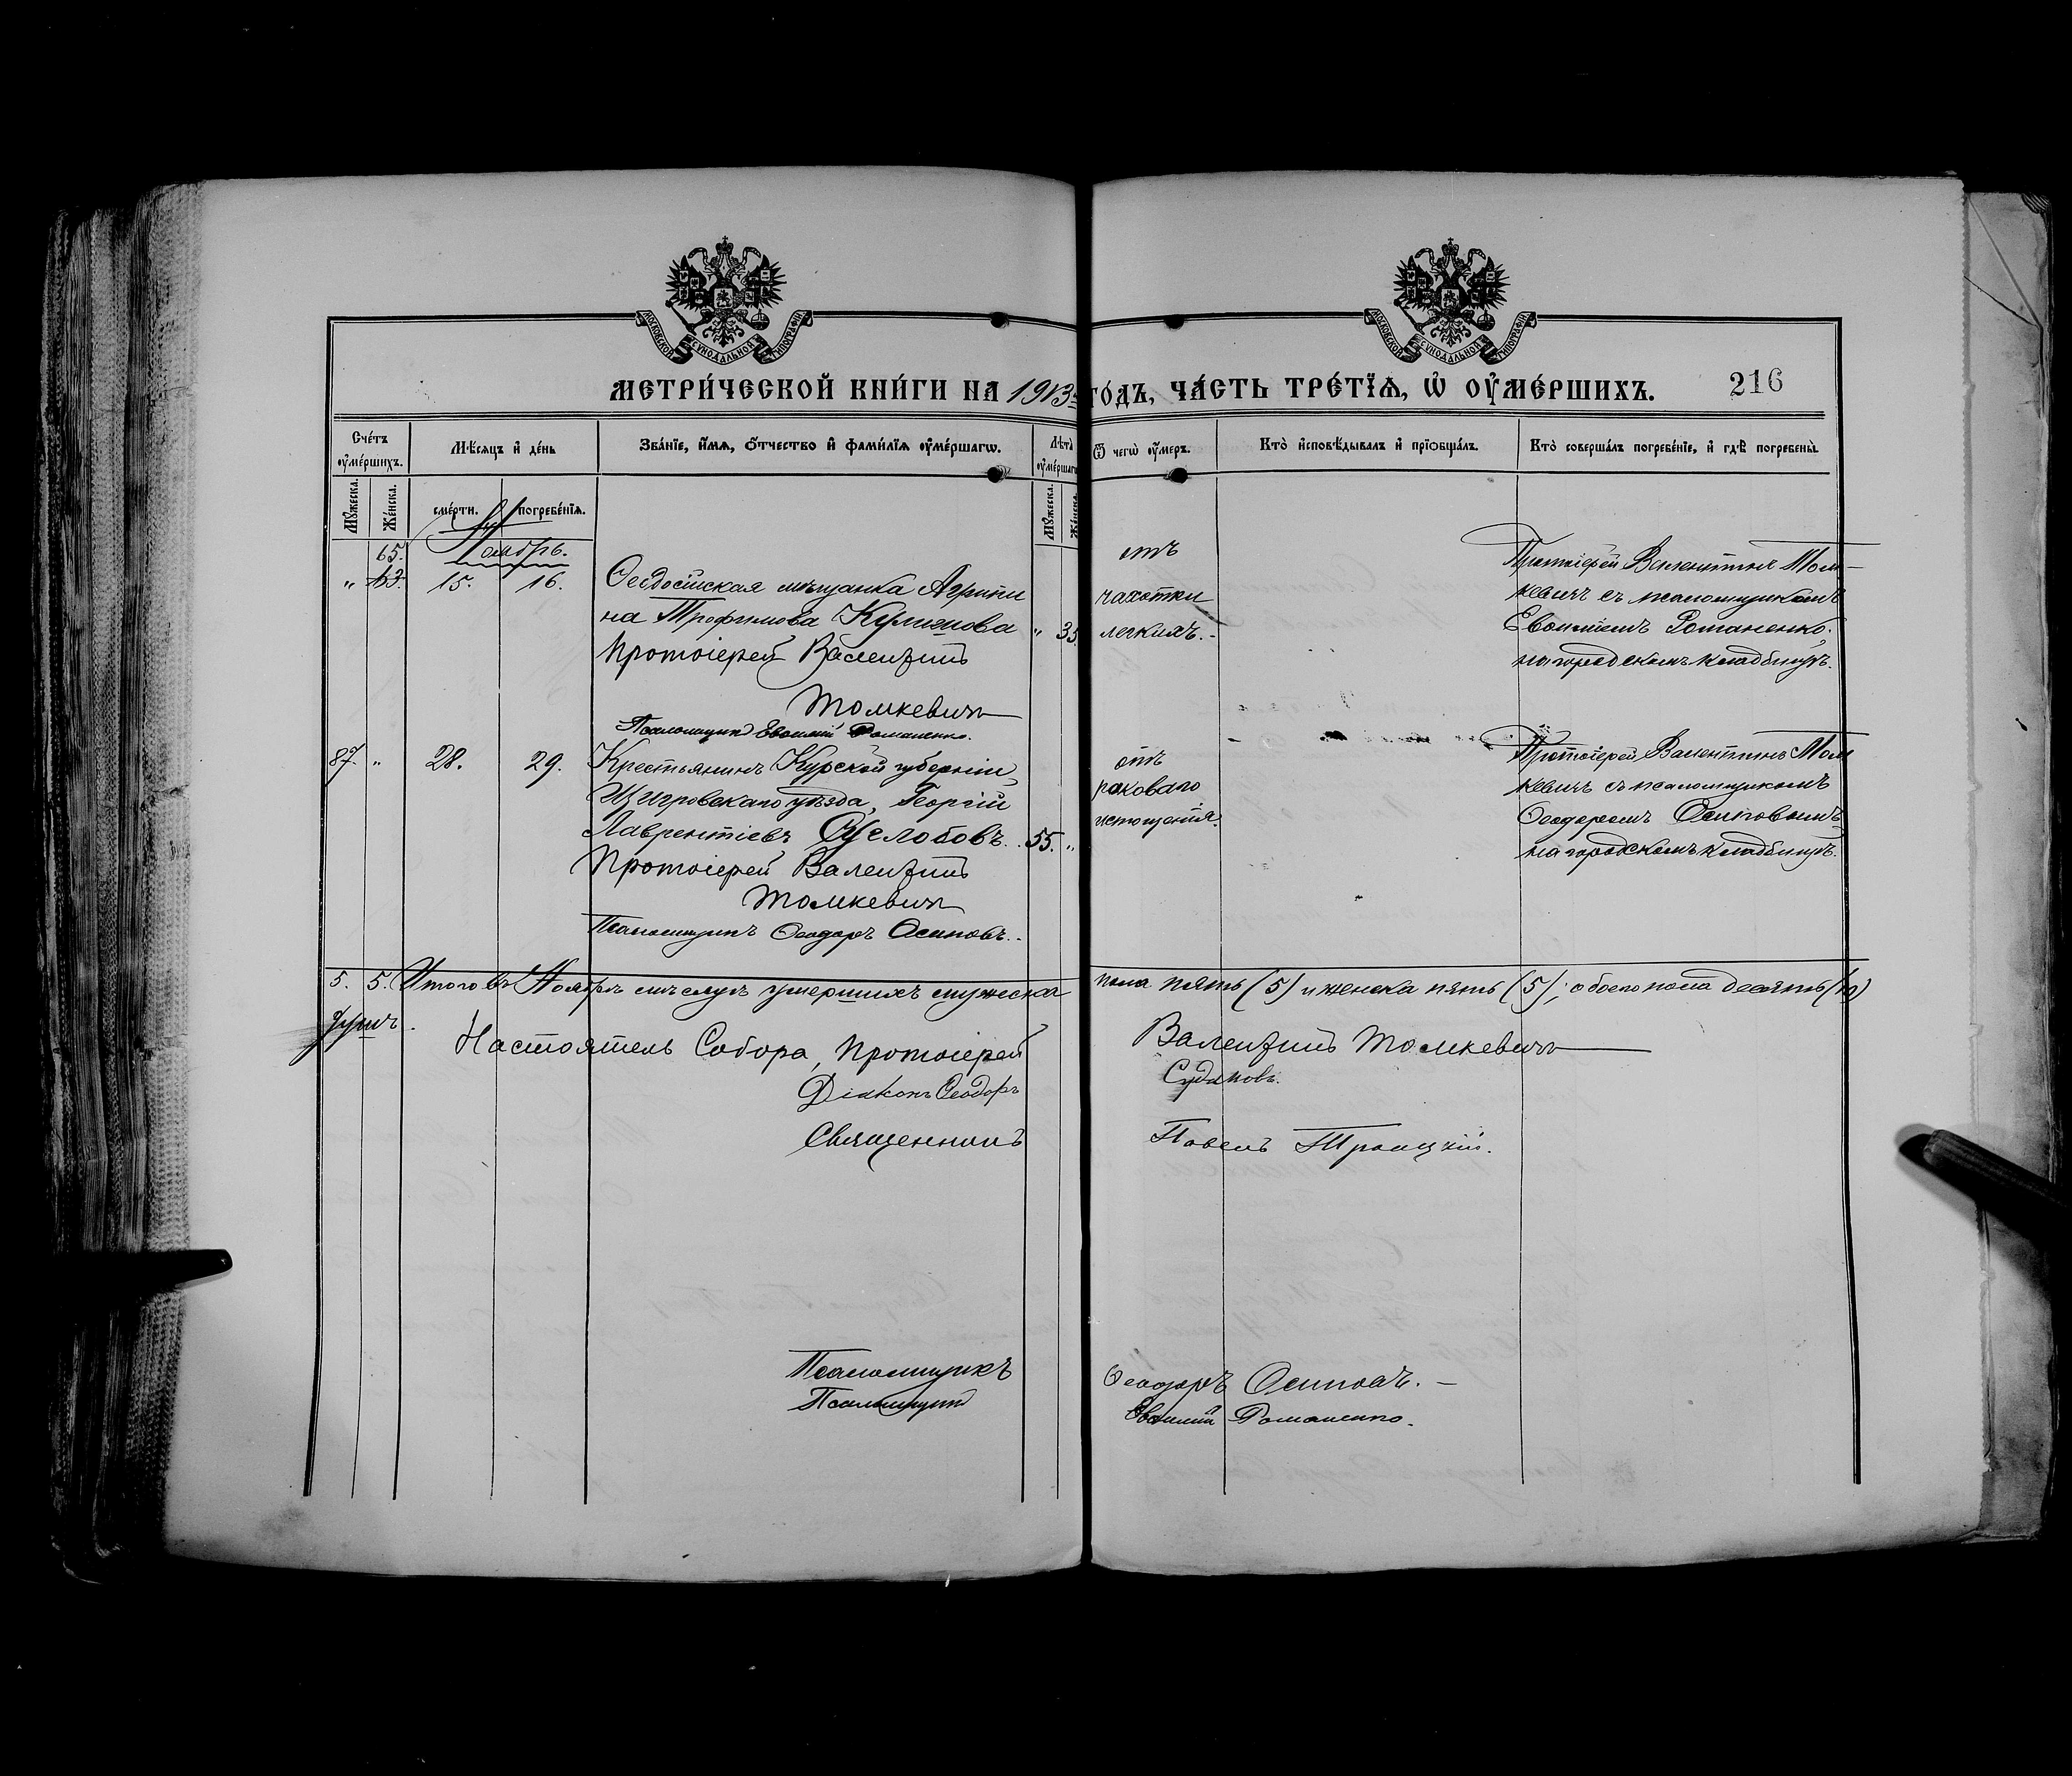 МОСКОВСКОЙ СѴНОДАЛЬНОЙ ТИПОГРАФІИ
МОСКОВСКОЙ СѴНОДАЛЬНОЙ ТИПОГРАФІИ
МЕТРИ́ЧЕСКОЙ КНИ́ГИ НА 1913 ГО́ДЪ, ЧА́СТЬ ТРЕ́ТЇѦ, Ѡ҆ ОУ҆МЕ́РШИХЪ.
216
Сче́тъ оу҆ме́ршихъ.
Мѣ́сяцъ и҆ де́нь
Зва́нїе, и҆́мѧ, ѻ҆́тчество и҆ фами́лїѧ оу҆ме́ршагѡ.
Лѣта̀ оу҆ме́ршагѡ
Ѿ чегѡ̀ оу҆́меръ.
Кто̀ и҆сповѣ́дывалъ и҆ прїѡбща́лъ.
Кто̀ соверша́лъ погребе́нїе, и҆ гдѣ̀ погребены̀.
Мꙋ́жеска.
Же́нска.
сме́рти.
погребе́нїѧ.
Мꙋ́жеска.
Же́нска.
Ноябрь.
65.
" 63. 15. 16.
Ѳеодосійская мѣщанка Агрипи
на Трофимова
" 35
Протоіерей Валентинъ
Томкевичъ
Псаломщикъ Евѳимій Романенко.
отъ
чахотки
легкихъ.
Протоіерей Валентинъ Том-
кевичъ съ псаломщикомъ
Евѳиміемъ Романенко.
на городскомъ кладбищѣ.
87. " 28. 29.
Крестьянинъ Курской губерніи,
Щигровскаго уѣзда, Георгій
Лаврентіевъ Суслобовъ. 55. "
Протоіерей Валентинъ
Томкевичъ
Псаломщикъ Ѳеодоръ Осиповъ.
отъ
раковаго
истощенія.
Протоіерей Валентинъ Том
кевичъ съ псаломщикомъ
Ѳеодоромъ Осиповымъ
на городскомъ кладбищѣ.
5. 5. Итого въ Ноябрѣ мѣсяцѣ умершихъ мужеска пола пять (5) и женска пять (5); обоего пола десять (10)
душъ.
Настоятель Собора, Протоіерей Валентинъ Томкевичъ
Діаконъ Ѳеодоръ Судаковъ.
Священникъ Павелъ Троицкій.
Псаломщикъ Ѳеодоръ Осиповъ. -
Псаломщикъ Евѳимій Романенко.